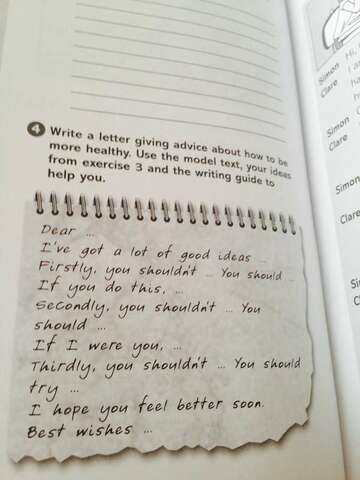 4 Write a letter giving advice about how to be
more healthy. Use the model text, your ideas
from exercise 3 and the writing guide to
help you.
Dear ...
I've got a lot of good ideas ...
Firstly, you shouldn't ... You should ...
If you do this, ...
Secondly, you shouldn't ... You
should ...
If I were you, ...
Thirdly, you shouldn't ... You should
try ...
I hope you feel better soon.
Best wishes ...
Simon Hi,
Clare I a
Simon
Clare
Simon
Clare